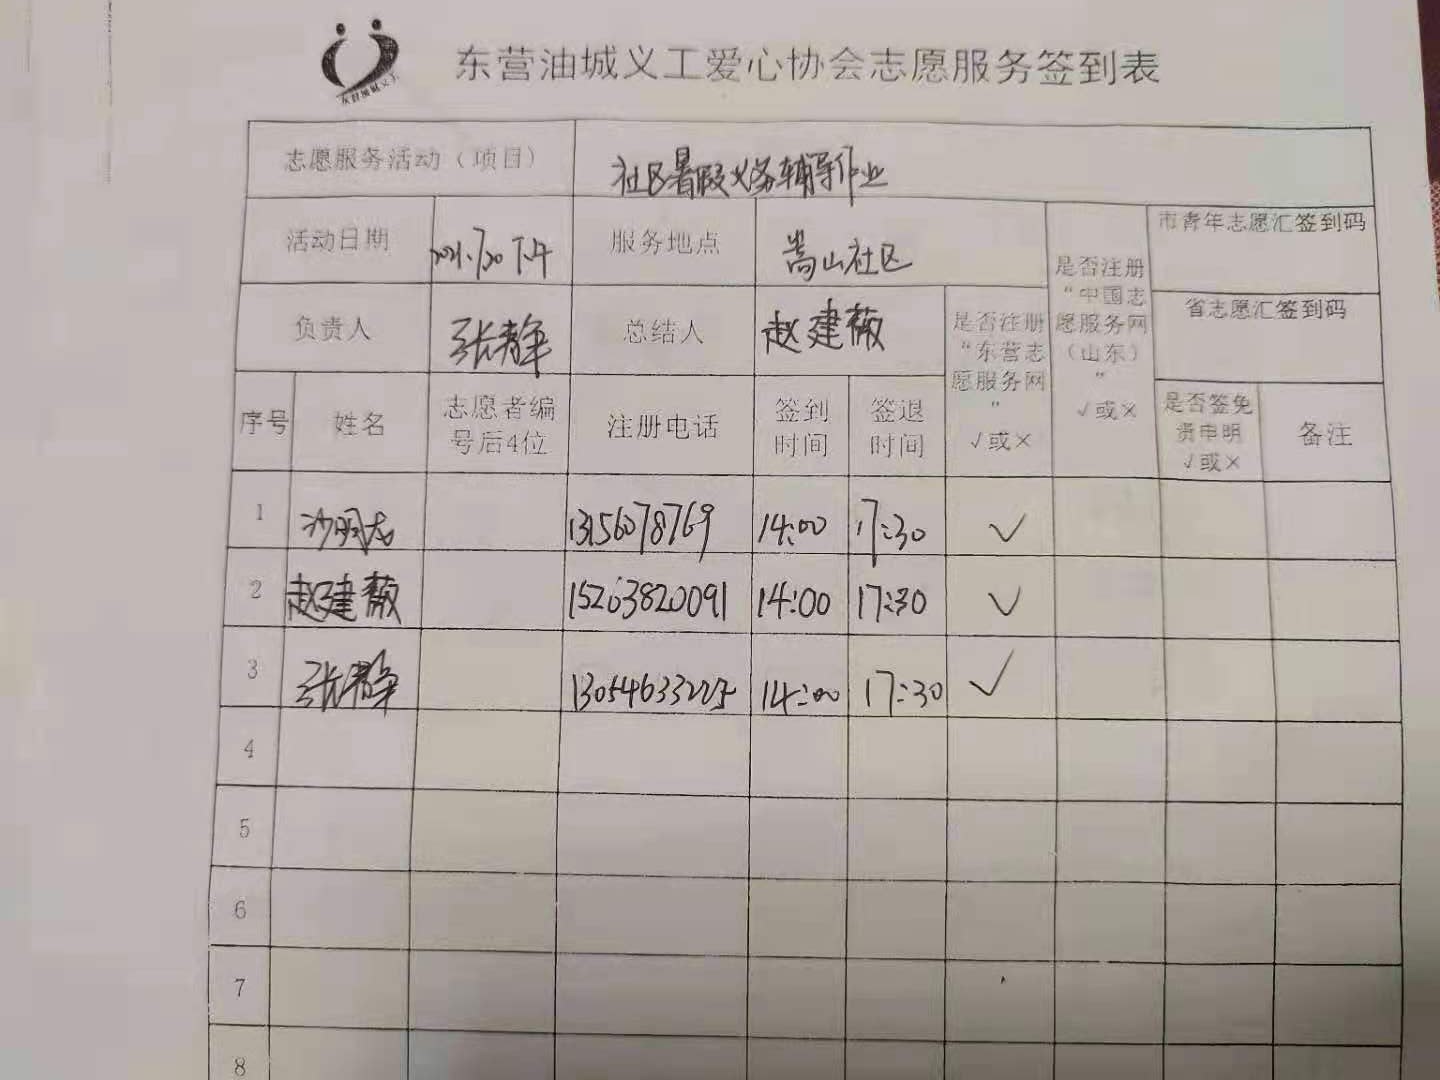 东营油城义工
东营油城义工爱心协会志愿服务签到表
志愿服务活动（项目） 社区暑假义务辅导作业
活动日期 2021.7/20 下午 服务地点 嵩山社区
负责人 张静 总结人 赵建薇
是否注册“东营志愿服务网” √或×
是否注册“中国志愿服务网（山东）” √或×
市青年志愿汇签到码
省志愿汇签到码
序号 姓名 志愿者编号后4位 注册电话 签到时间 签退时间 是否签免责申明 √或× 备注
1 沙明 13156078769 14:00 17:30 √
2 赵建薇 15263820091 14:00 17:30 √
3 张静 13054633225 14:00 17:30 √
4
5
6
7
8